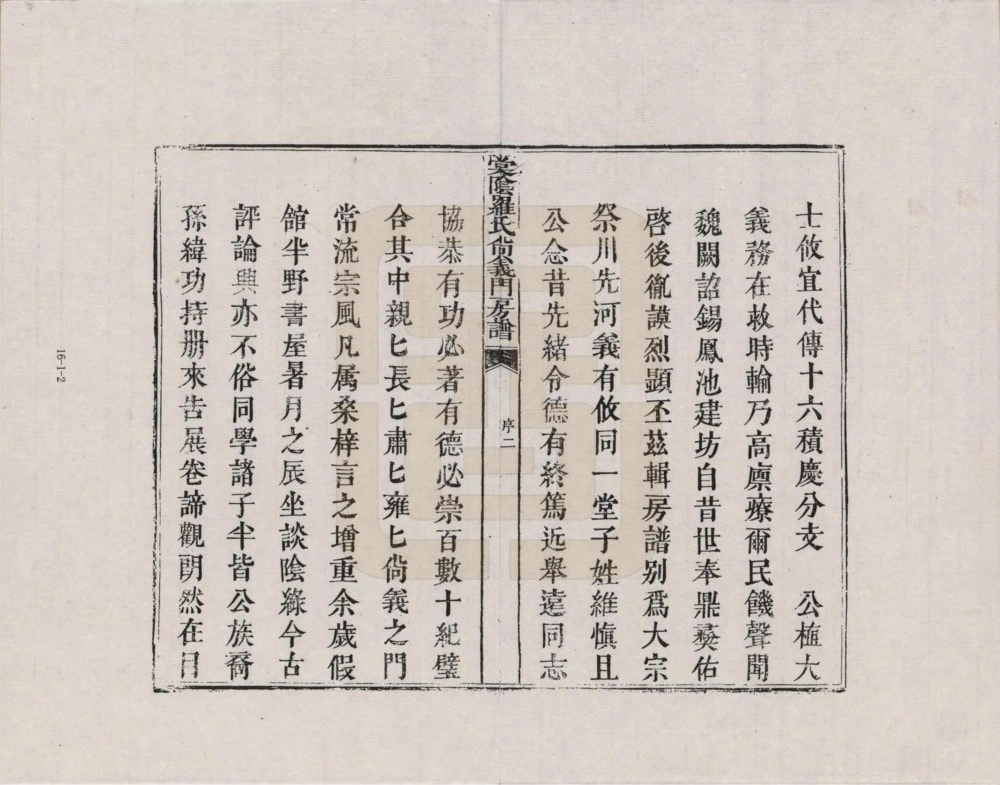 士攸宜代傳十六積慶分支　公植大
義務在救時輸乃高廩療爾民饑聲聞
魏闕詔錫鳳池建坊自昔世奉鼎彝佑
啓後徹謨烈顯丕茲輯房譜別爲大宗
祭川先河義有攸同一堂子姓維愼且
公念昔先緒令德有終篤近舉遠同志
棠陰羅氏尙義門房譜
序二
協恭有功必著有德必崇百數十紀壁
合其中親匕長匕肅匕雍匕尙義之門
常流宗風凡属桑梓言之增重余歲假
館半野書屋暑月之辰坐談陰綠今古
評論興亦不俗同學諸子半皆公族裔
孫緯功持册來告展卷諦觀朗然在目
16-1-2